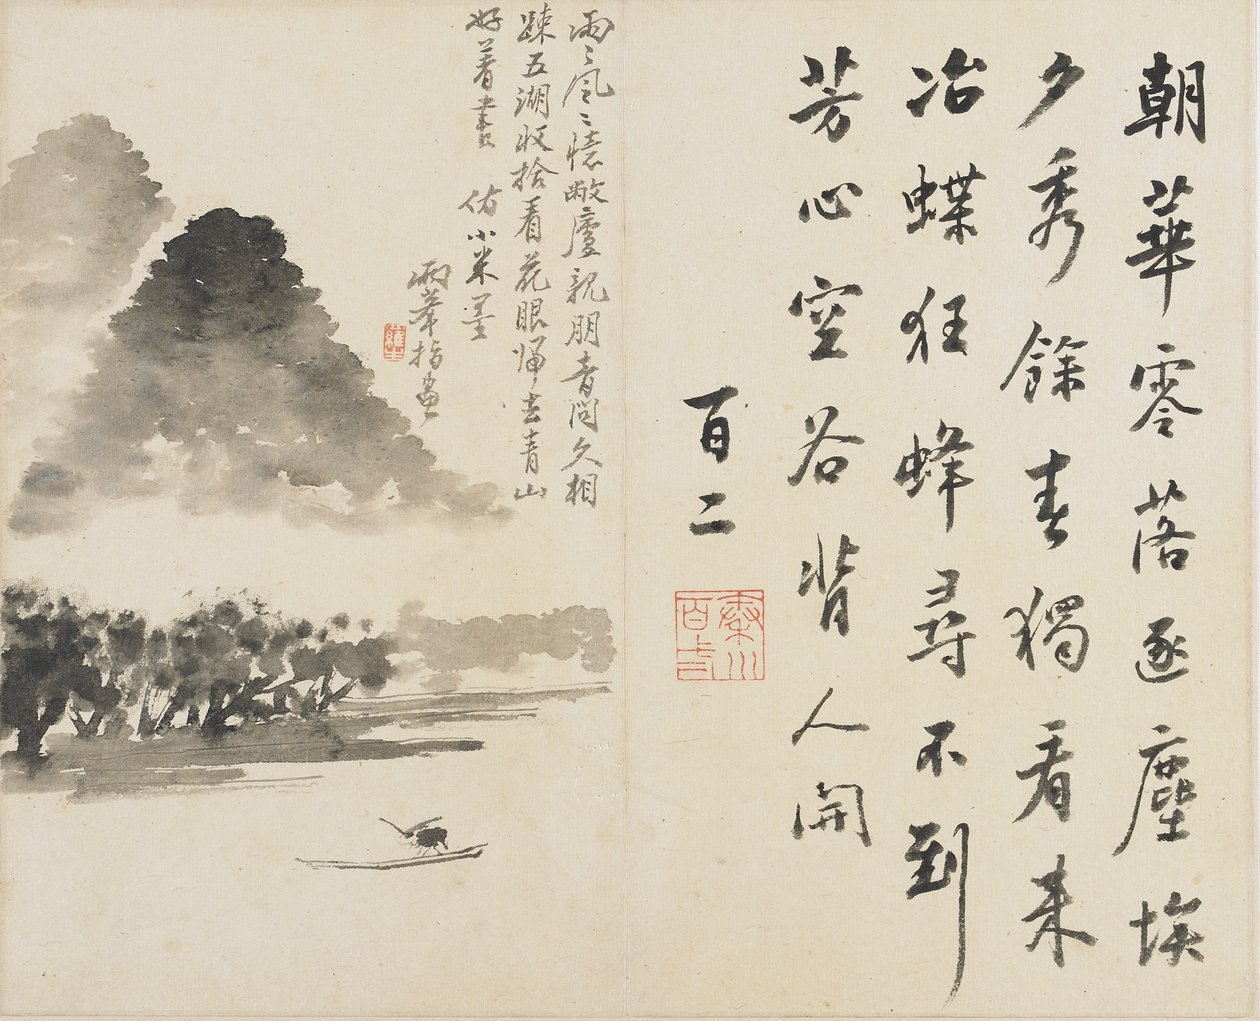 朝華零落逐塵埃
夕秀餘春獨看來
冶蝶狂蜂尋不到
芳心空谷背人開
百二
雨雨風風憶敝廬親朋音問久相
踈五湖收拾看花眼歸去青山
好著書 仿小米墨
兩峯指畫